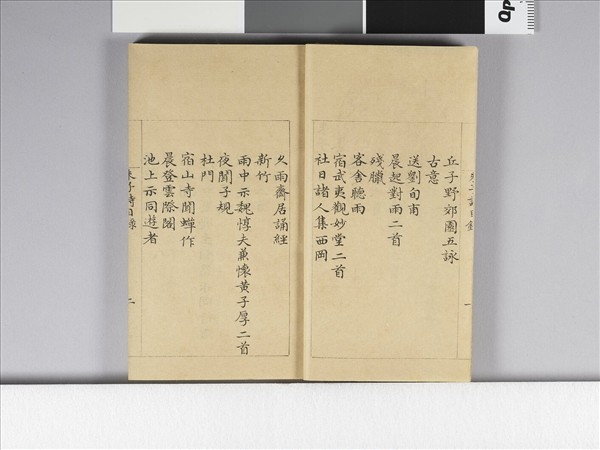 丘子野郊園五詠
古意
送劉旬甫
晨起對雨二首
殘臘
客舍聽雨
宿武夷觀妙堂二首
社日諸人集西岡
朱子詩目錄
一
久雨齋居誦經
新竹
雨中示魏惇夫兼懷黃子厚二首
夜聞子規
杜門
宿山寺聞蟬作
晨登雲際閣
池上示同遊者
朱子詩目錄
二